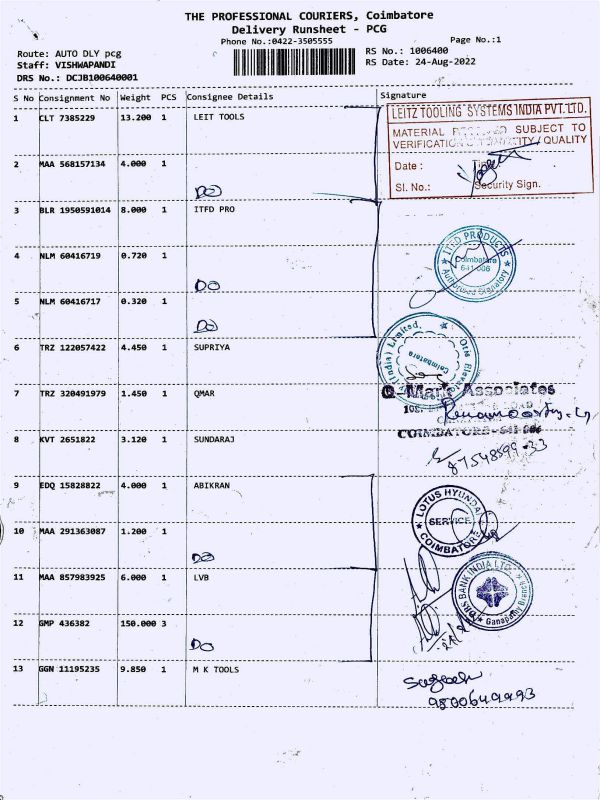 THE PROFESSIONAL COURIERS, Coimbatore
Delivery Runsheet - PCG
Phone No.:0422-3505555
Page No.:1
Route: AUTO DLY pcg
RS No.: 1006400
Staff: VISHWAPANDI
RS Date: 24-Aug-2022
DRS No.: DCJB100640001
S No Consignment No Weight PCS Consignee Details Signature
1 CLT 7385229 13.200 1 LEIT TOOLS
LEITZ TOOLING SYSTEMS INDIA PVT. LTD.
MATERIAL SUBJECT TO
VERIFICATION / QUALITY
Date :
Sl. No.: Security Sign.
2 MAA 568157134 4.000 1
DO
3 BLR 1950591014 8.000 1 ITFD PRO
ITFD PRODUCTS
Coimbatore
641 006
Authorised Signatory
4 NLM 60416719 0.720 1
DO
5 NLM 60416717 0.320 1
DO
6 TRZ 122057422 4.450 1 SUPRIYA
(India) Limited.
Coimbatore
7 TRZ 320491979 1.450 1 QMAR
Q Mark Associates
COIMBATORE - 641 006
8 KVT 2651822 3.120 1 SUNDARAJ
87548599-33
9 EDQ 15828822 4.000 1 ABIKRAN
LOTUS HYUNDAI
SERVICE
COIMBATORE
10 MAA 291363087 1.200 1
DO
11 MAA 857983925 6.000 1 LVB
DBS BANK INDIA LTD.
Ganapathy Branch
12 GMP 436382 150.000 3
DO
13 GGN 11195235 9.850 1 M K TOOLS